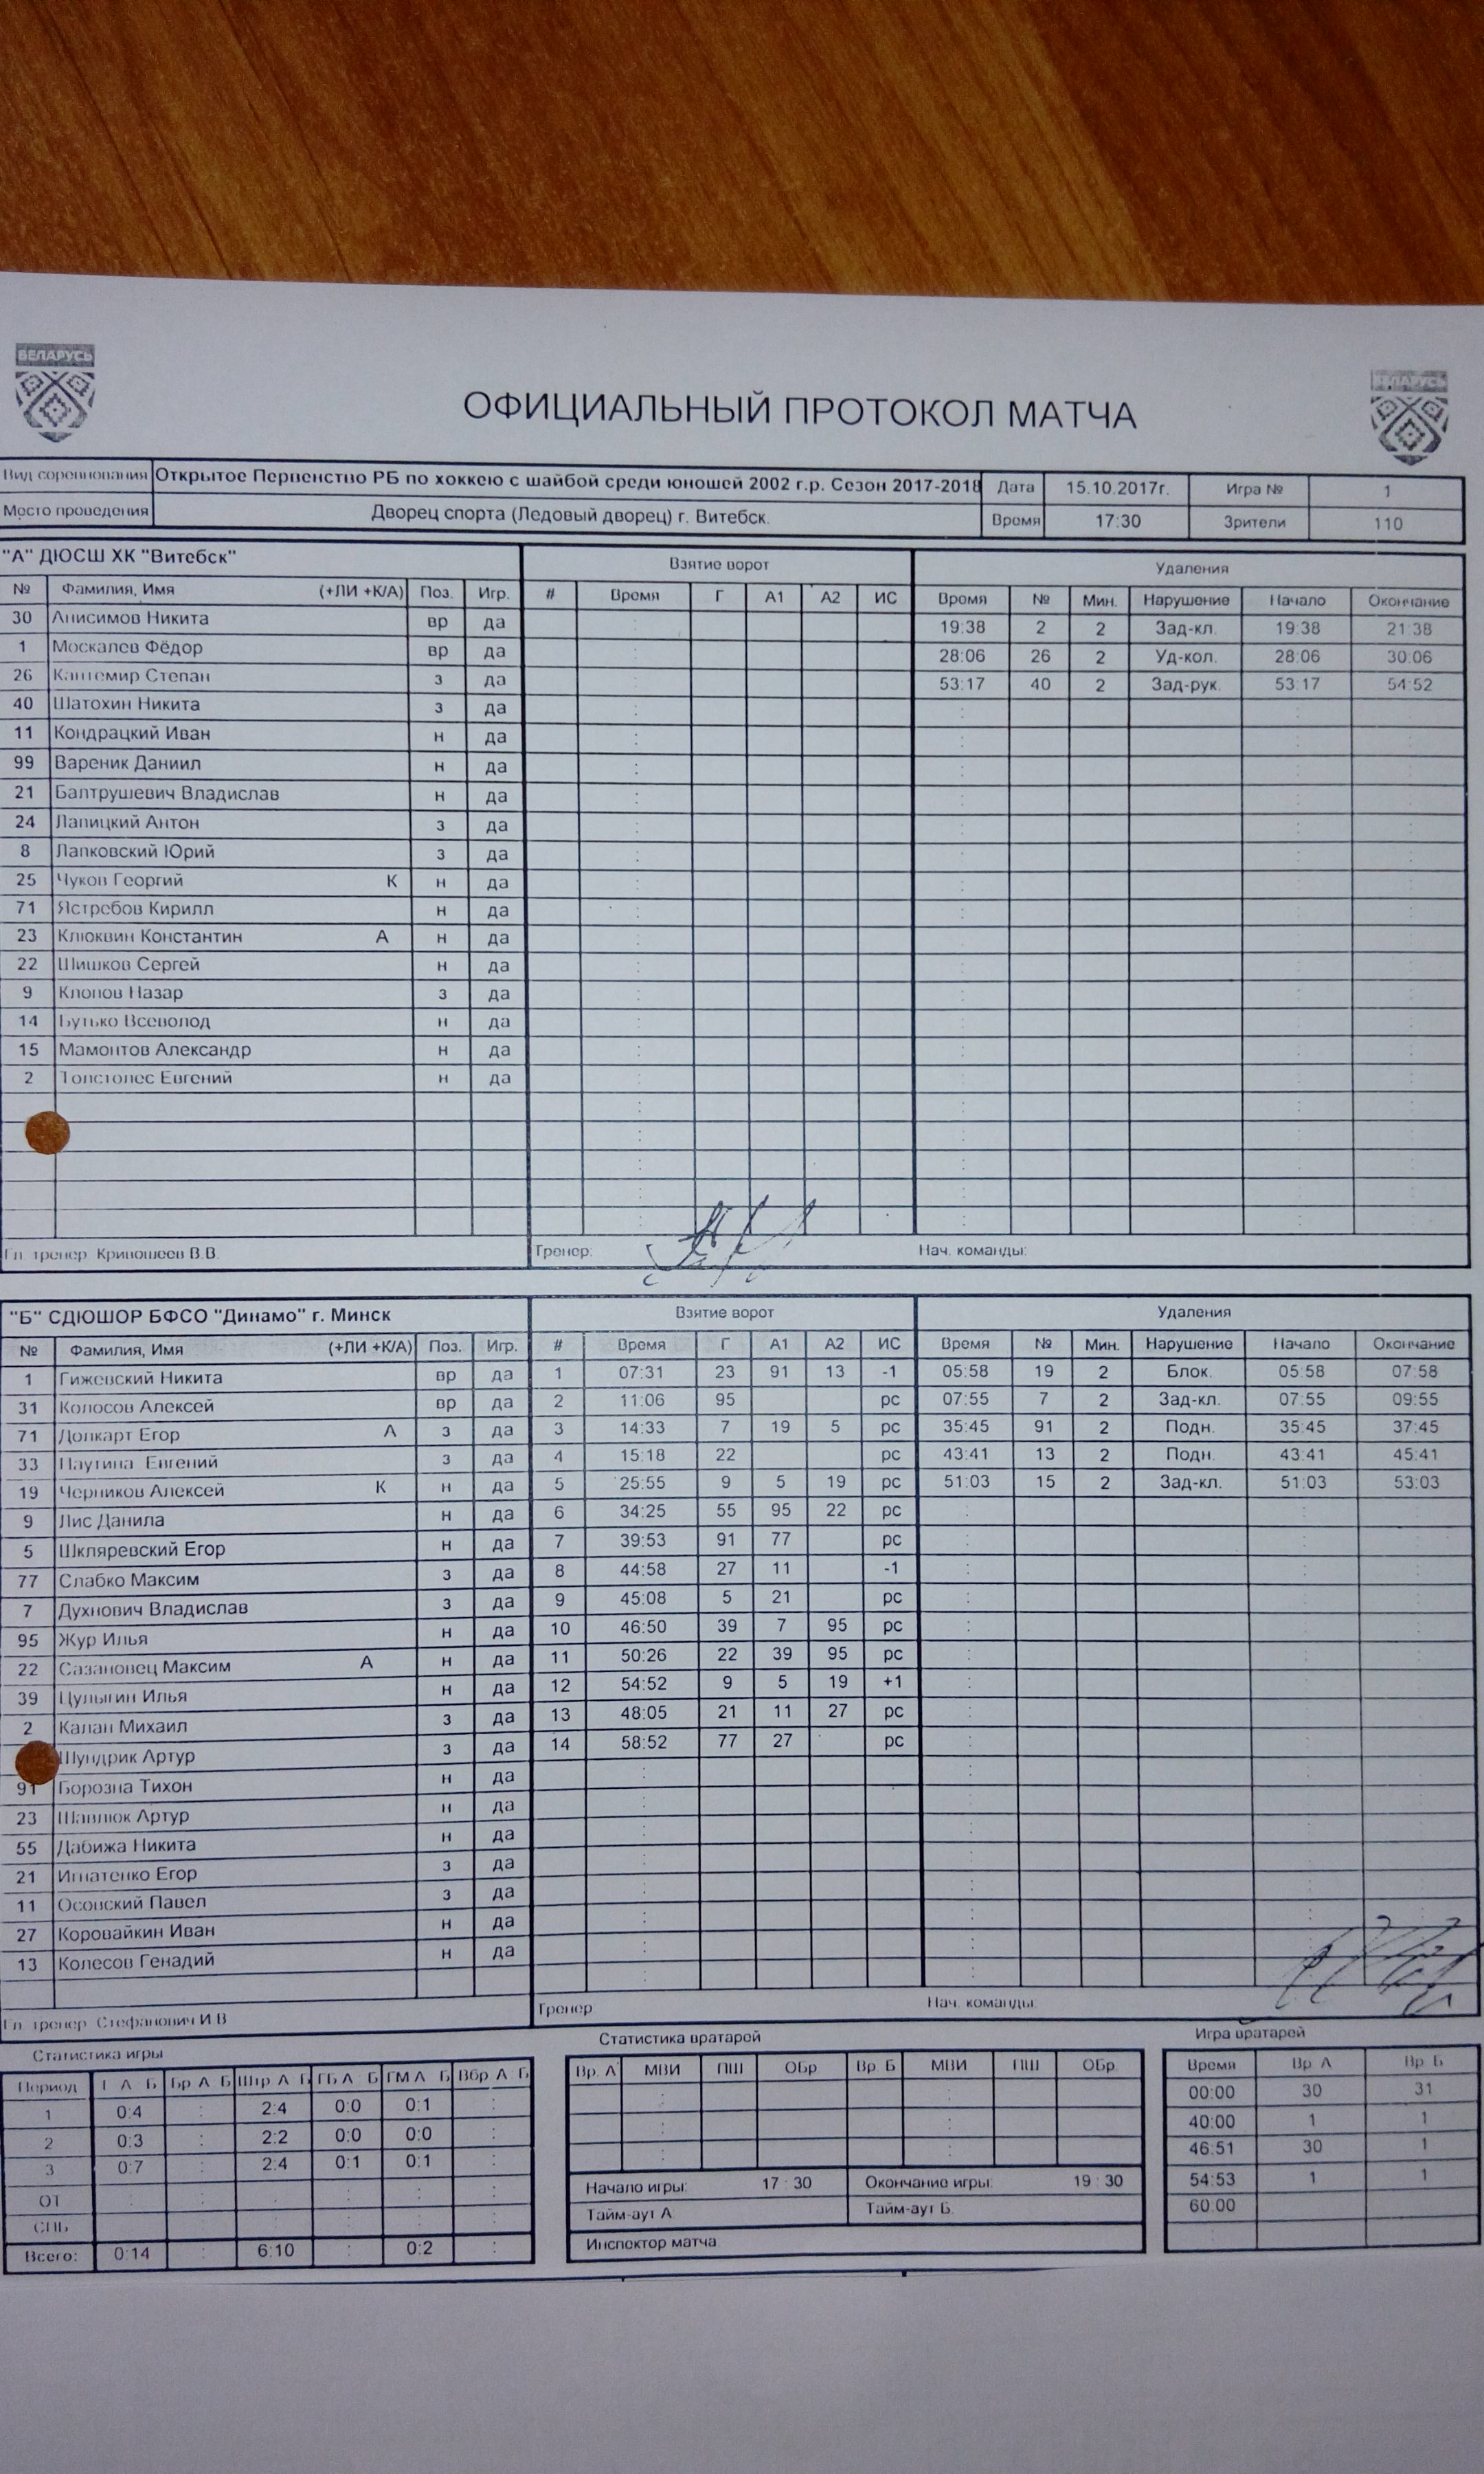 БЕЛАРУСЬ
БЕЛАРУСЬ
ОФИЦИАЛЬНЫЙ ПРОТОКОЛ МАТЧА
Вид соревнования Открытое Первенство РБ по хоккею с шайбой среди юношей 2002 г.р. Сезон 2017-2018 Дата 15.10.2017г. Игра № 1
Место проведения Дворец спорта (Ледовый дворец) г. Витебск. Время 17:30 Зрители 110
"А" ДЮСШ ХК "Витебск" Взятие ворот Удаления
№ Фамилия, Имя (+ЛИ +К/А) Поз. Игр. # Время Г А1 А2 ИС Время № Мин. Нарушение Начало Окончание
30 Анисимов Никита вр да 19:38 2 2 Зад-кл. 19:38 21:38
1 Москалев Фёдор вр да 28:06 26 2 Уд-кол. 28:06 30:06
26 Кантемир Степан з да 53:17 40 2 Зад-рук. 53:17 54:52
40 Шатохин Никита з да
11 Кондрацкий Иван н да
99 Вареник Даниил н да
21 Балтрушевич Владислав н да
24 Лапицкий Антон з да
8 Лапковский Юрий з да
25 Чуков Георгий К н да
71 Ястребов Кирилл н да
23 Клюквин Константин А н да
22 Шишков Сергей н да
9 Клопов Назар з да
14 Бутько Всеволод н да
15 Мамонтов Александр н да
2 Толстолес Евгений н да
Гл. тренер Кривошеев В.В. Тренер: Нач. команды:
"Б" СДЮШОР БФСО "Динамо" г. Минск Взятие ворот Удаления
№ Фамилия, Имя (+ЛИ +К/А) Поз. Игр. # Время Г А1 А2 ИС Время № Мин. Нарушение Начало Окончание
1 Гижевский Никита вр да 1 07:31 23 91 13 -1 05:58 19 2 Блок. 05:58 07:58
31 Колосов Алексей вр да 2 11:06 95 рс 07:55 7 2 Зад-кл. 07:55 09:55
71 Долкарт Егор А з да 3 14:33 7 19 5 рс 35:45 91 2 Подн. 35:45 37:45
33 Паутина Евгений з да 4 15:18 22 рс 43:41 13 2 Подн. 43:41 45:41
19 Черников Алексей К н да 5 25:55 9 5 19 рс 51:03 15 2 Зад-кл. 51:03 53:03
9 Лис Данила н да 6 34:25 55 95 22 рс
5 Шкляревский Егор н да 7 39:53 91 77 рс
77 Слабко Максим з да 8 44:58 27 11 -1
7 Духнович Владислав з да 9 45:08 5 21 рс
95 Жур Илья н да 10 46:50 39 7 95 рс
22 Сазановец Максим А н да 11 50:26 22 39 95 рс
39 Цулыгин Илья н да 12 54:52 9 5 19 +1
2 Калан Михаил з да 13 48:05 21 11 27 рс
Шундрик Артур з да 14 58:52 77 27 рс
91 Борозна Тихон н да
23 Шавлюк Артур н да
55 Дабижа Никита н да
21 Игнатенко Егор з да
11 Осовский Павел з да
27 Коровайкин Иван н да
13 Колесов Генадий н да
Гл. тренер Стефанович И.В Тренер Нач. команды
Статистика игры Статистика вратарей Игра вратарей
Период Г А Б Бр А Б Шр А Б ГБ А Б ГМ А Б Вбр А Б Вр. А МВИ ПШ ОБр Вр. Б МВИ ПШ ОБр. Время Вр А Вр Б
1 0:4 : 2:4 0:0 0:1 : 00:00 30 31
2 0:3 : 2:2 0:0 0:0 : 40:00 1 1
3 0:7 : 2:4 0:1 0:1 : 46:51 30 1
ОТ Начало игры: 17 : 30 Окончание игры: 19 : 30 54:53 1 1
СПБ Тайм-аут А Тайм-аут Б. 60:00
Всего: 0:14 : 6:10 : 0:2 : Инспектор матча